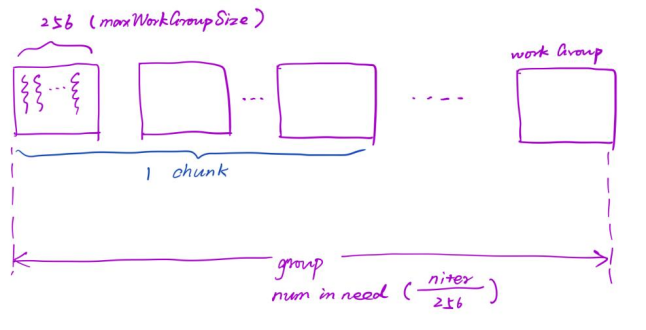 256 (maxWorkGroupSize)
...
work Group
...
....
1 chunk
group
num in need ( niter / 256 )